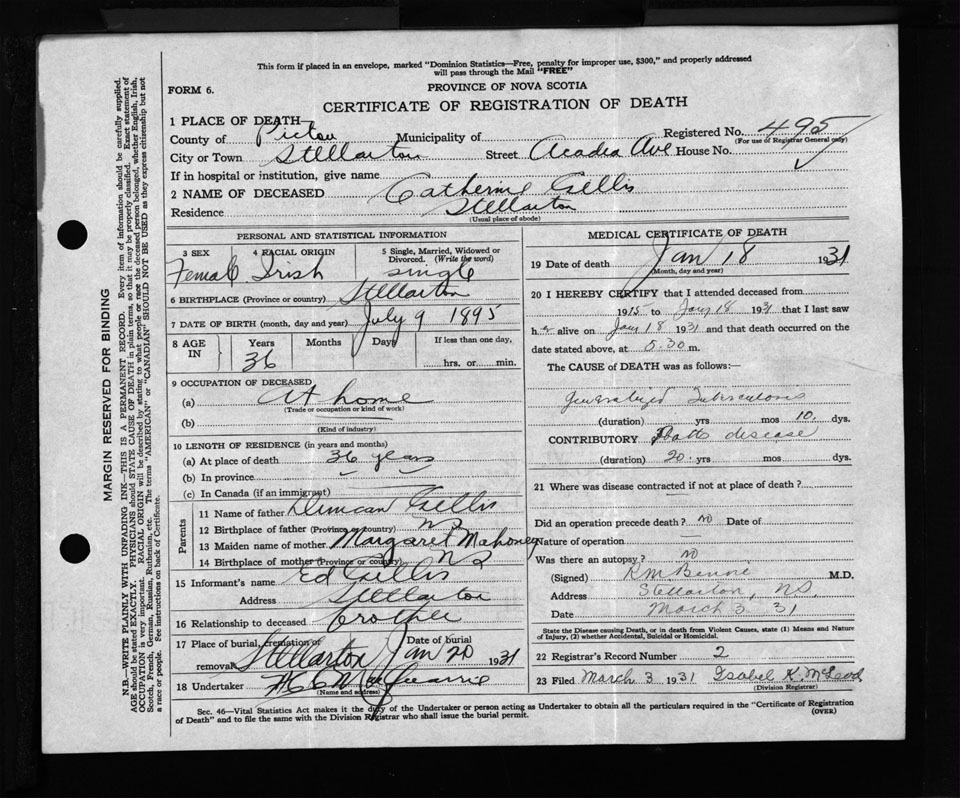 This form if placed in an envelope, marked "Dominion Statistics—Free, penalty for improper use, $300," and properly addressed
will pass through the Mail "FREE"
FORM 6.
PROVINCE OF NOVA SCOTIA
CERTIFICATE OF REGISTRATION OF DEATH
1 PLACE OF DEATH
County of Pictou Municipality of Registered No. 495
(For use of Registrar General only)
City or Town Stellarton Street Acadia Ave House No.
If in hospital or institution, give name
2 NAME OF DECEASED Catherine Gillis
Residence Stellarton
(Usual place of abode)
PERSONAL AND STATISTICAL INFORMATION
3 SEX 4 RACIAL ORIGIN 5 Single, Married, Widowed or Divorced. (Write the word)
Female Irish single
6 BIRTHPLACE (Province or country) Stellarton
7 DATE OF BIRTH (month, day and year) July 9 1895
8 AGE IN Years Months Days If less than one day,
36 hrs. or min.
9 OCCUPATION OF DECEASED
(a) At home
(Trade or occupation or kind of work)
(b)
(Kind of industry)
10 LENGTH OF RESIDENCE (in years and months)
(a) At place of death 36 years
(b) In province
(c) In Canada (if an immigrant)
Parents
11 Name of father Duncan Gillis
12 Birthplace of father (Province or country) NS
13 Maiden name of mother Margaret Mahoney
14 Birthplace of mother (Province or country) NS
15 Informant's name Ed Gillis
Address Stellarton
16 Relationship to deceased brother
17 Place of burial, cremation or removal Stellarton Date of burial Jan 20 1931
18 Undertaker
(Name and address)
MEDICAL CERTIFICATE OF DEATH
19 Date of death Jan 18 1931
(Month, day and year)
20 I HEREBY CERTIFY that I attended deceased from
1915 to Jany 18 1931 that I last saw
h er alive on Jany 18 1931 and that death occurred on
date stated above, at 5.30 m.
The CAUSE of DEATH was as follows:—
Generalized Tuberculosis
(duration) yrs mos 10 dys.
CONTRIBUTORY Potts disease
(duration) 20 yrs mos dys.
21 Where was disease contracted if not at place of death?
Did an operation precede death? no Date of
Nature of operation
Was there an autopsy? no
(Signed) M.D.
Address Stellarton, NS.
Date March 3 31
State the Disease causing Death, or in death from Violent Causes, state (1) Means and Nature
of Injury, (2) whether Accidental, Suicidal or Homicidal.
22 Registrar's Record Number 2
23 Filed March 3 1931 Isabel K. McLeod
(Division Registrar)
Sec. 46—Vital Statistics Act makes it the duty of the Undertaker or person acting as Undertaker to obtain all the particulars required in the "Certificate of Registration
of Death" and to file the same with the Division Registrar who shall issue the burial permit.
(OVER)
MARGIN RESERVED FOR BINDING
N.B.—WRITE PLAINLY WITH UNFADING INK—THIS IS A PERMANENT RECORD. Every item of information should be carefully supplied.
AGE should be stated EXACTLY. PHYSICIANS should STATE CAUSE OF DEATH in plain terms, so that it may be properly classified. Exact statement of
OCCUPATION is very important. RACIAL ORIGIN will be described by stating to what people or race the deceased person belonged, whether English, Irish,
Scotch, French, German, Russian, Ruthenian, etc. The terms "AMERICAN" or "CANADIAN" SHOULD NOT BE USED as they express citizenship but not
a race or people. See instructions on back of Certificate.